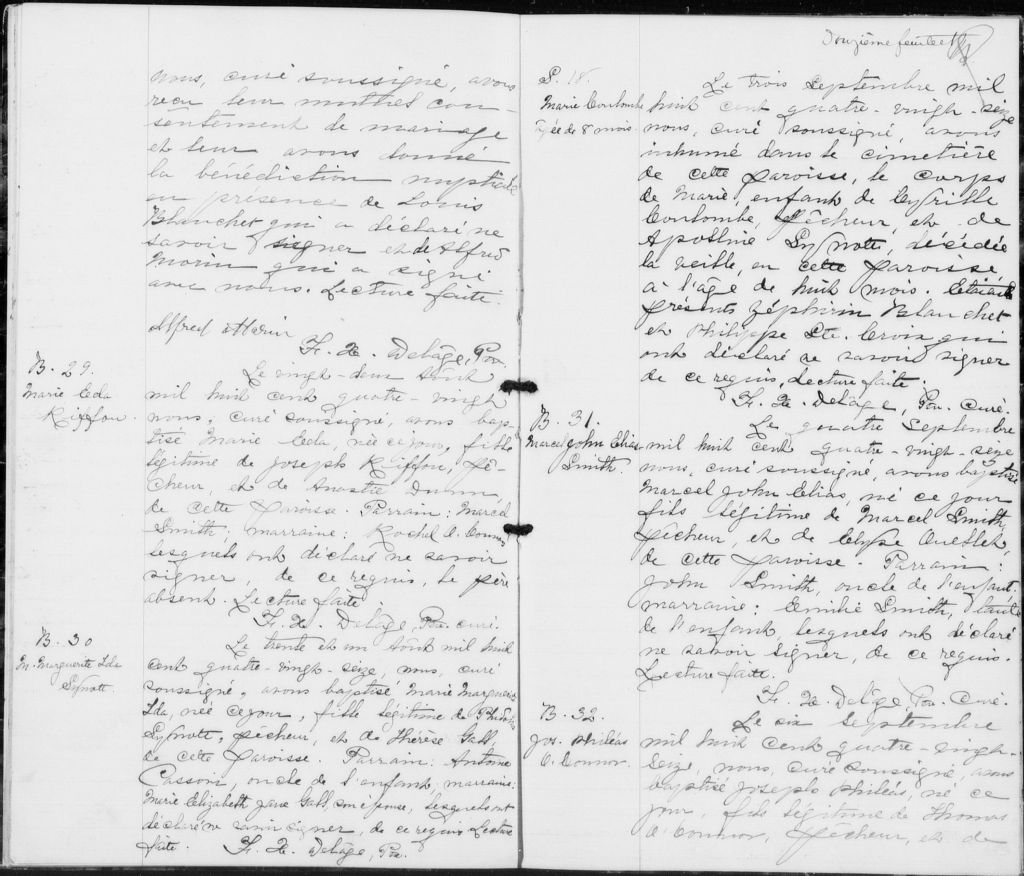 nous, curé soussigné, avons
reçu leur muthel con-
sentement de mariage
et leur avons donné
la bénédiction nuptiale
en présence de Louis
Blanchet qui a déclaré ne
savoir signer et de Alfred
Morin qui a signé
avec nous. Lecture faite.
Alfred Morin
F. X. Delâge, Ptr.
B. 29.
Marie Leda
Kiffou.
Le vingt-deux Août
mil huit cent quatre-vingt
nous, curé soussigné, avons bap-
tisé Marie Leda, née ce jour, fille
légitime de Joseph Kiffou, pê-
cheur, et de Anastie Dunn,
de cette paroisse. Parrain: Marcel
Smith; marraine: Rachel O. Connor,
lesquels ont déclaré ne savoir
signer, de ce requis, le père
absent. Lecture faite.
F. X. Delâge, Ptr. curé.
B. 30
M. Marguerite Ida
Synott.
Le trente et un Août mil huit
cent quatre-vingt-seize, nous, curé
soussigné, avons baptisé Marie Marguerite
Ida, née ce jour, fille légitime de
Synott, pêcheur, et de Thérèse Gall,
de cette paroisse. Parrain: Antoine
Cassoni, oncle de l'enfant, marraine:
Marie Elizabeth Jane Gall, son épouse, lesquels ont
déclaré ne savoir signer, de ce requis. Lecture
faite. F. X. Delâge, Ptr.
Douzième feuillet
S. 18.
Marie Coulombe
âgée de 8 mois.
Le trois Septembre mil
huit cent quatre-vingt-seize
nous, curé soussigné, avons
inhumé dans le cimetière
de cette paroisse, le corps
de Marie, enfant de Cyrille
Coulombe, pêcheur, et de
Apolline Synott, décédée
la veille, en cette paroisse
à l'âge de huit mois. Etaient
présents Zéphirin Blanchet
et Philippe Ste. Croix qui
ont déclaré ne savoir signer
de ce requis. Lecture faite.
F. X. Delâge, Ptr. curé.
B. 31.
Marcel John Elias
Smith.
Le quatre Septembre
mil huit cent quatre-vingt-seize
nous, curé soussigné, avons baptisé
Marcel John Elias, né ce jour
fils légitime de Marcel Smith,
pêcheur, et de Elyse Ouellet,
de cette paroisse. Parrain:
John Smith, oncle de l'enfant.
marraine: Emilie Smith, tante
de l'enfant, lesquels ont déclaré
ne savoir signer, de ce requis.
Lecture faite.
F. X. Delâge, Ptr. Curé.
B. 32.
Jos. Philéas
O. Connor.
Le six Septembre
mil huit cent quatre-vingt-
seize, nous, curé soussigné, avons
baptisé Joseph Philéas, né ce
jour, fils légitime de Thomas
O. Connor, pêcheur, et de